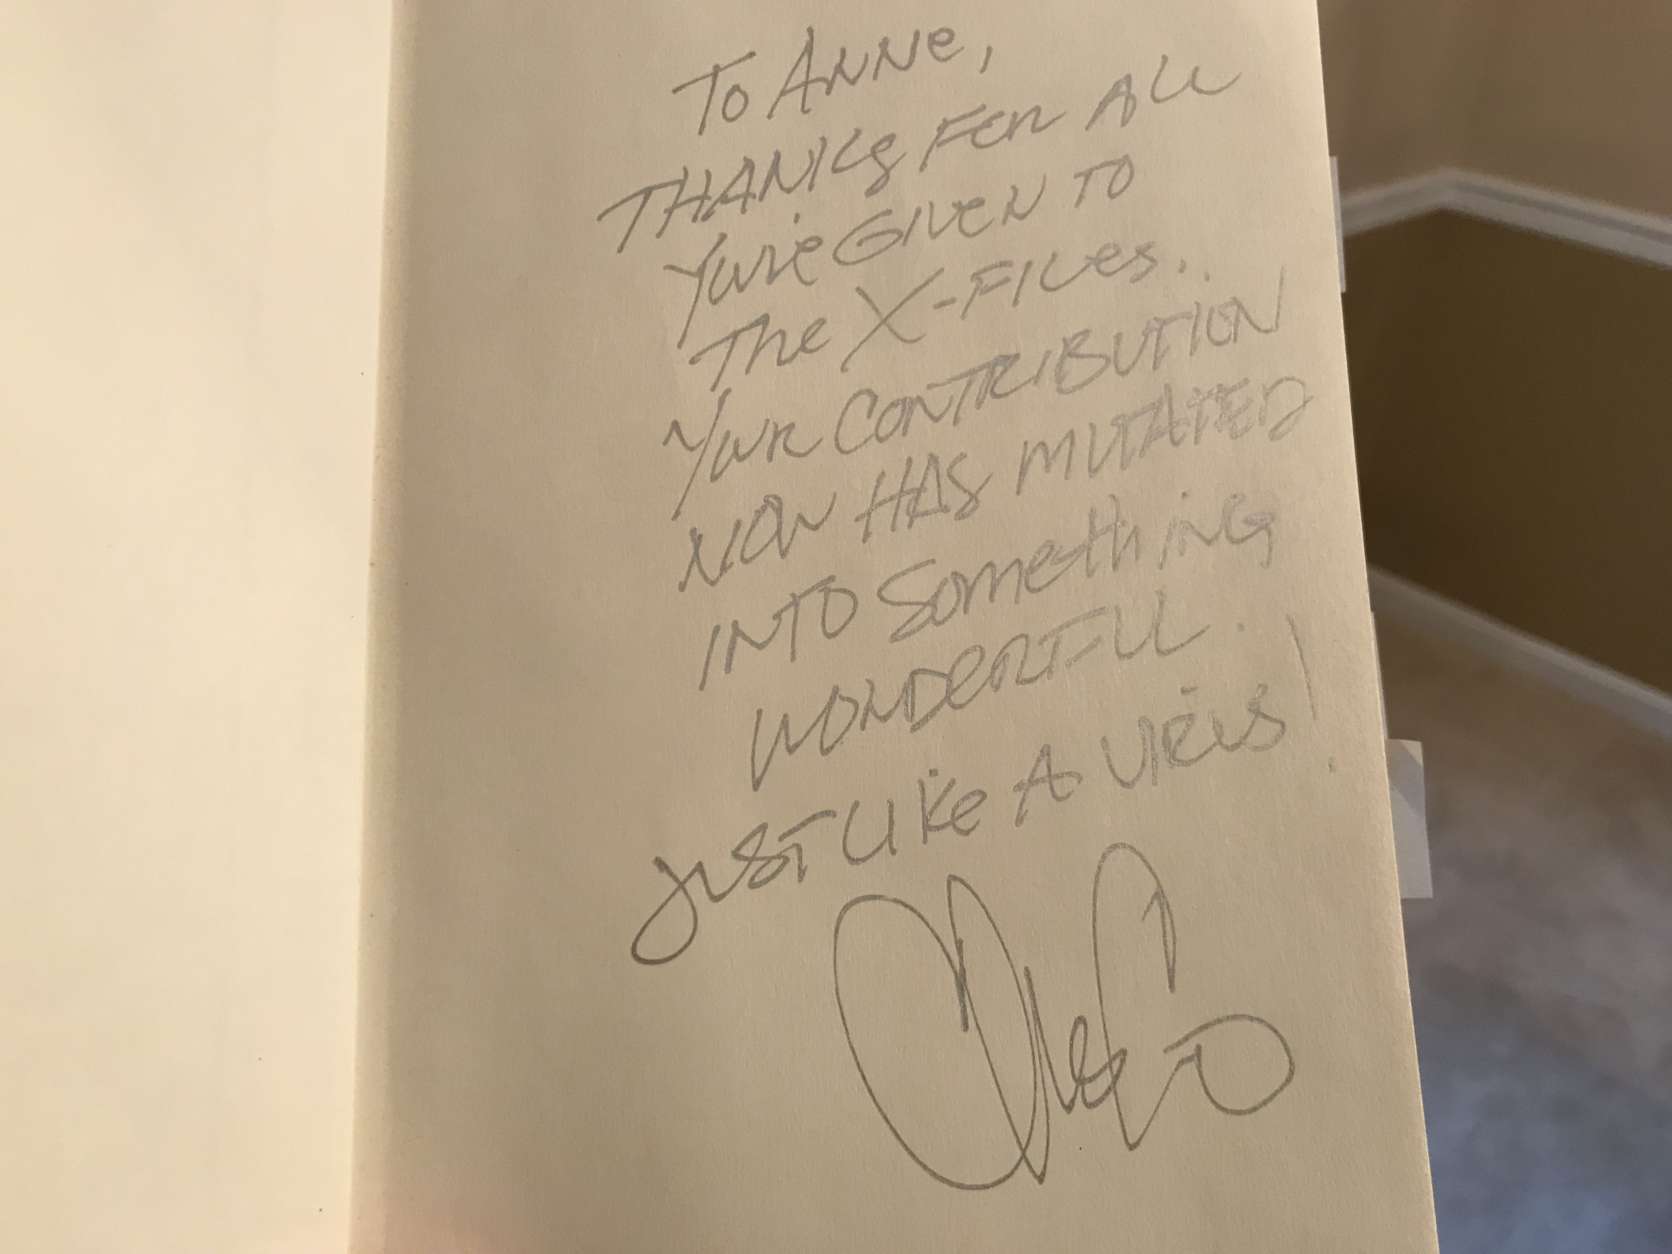 To Anne,
THANKS FOR ALL
You've GIVEN TO
The X-FILES..
Your CONTRIBUTION
NOW HAS MUTATED
INTO SOMEthING
WONDERFUL.
JUST LIKE A VIRUS!